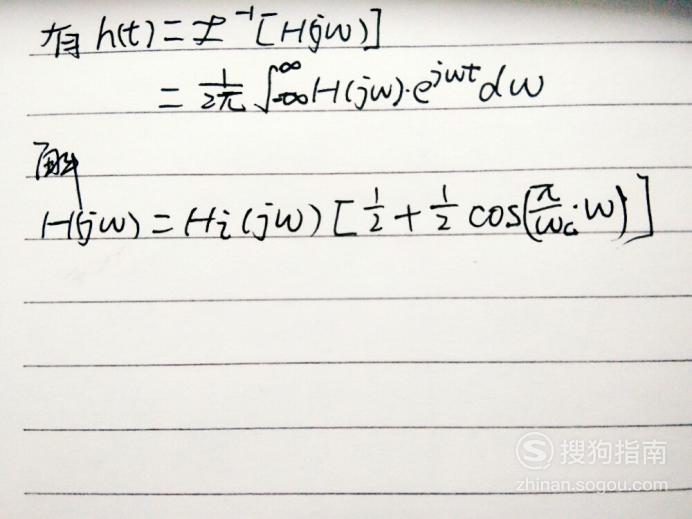 有 h(t) = ℱ⁻¹[H(jω)]
= 1/2π ∫_{-∞}^{∞} H(jω)·e^{jωt} dω
解
H(jω) = Hi(jω)[1/2 + 1/2 cos(π/ωc·ω)]
搜狗指南
zhinan.sogou.com